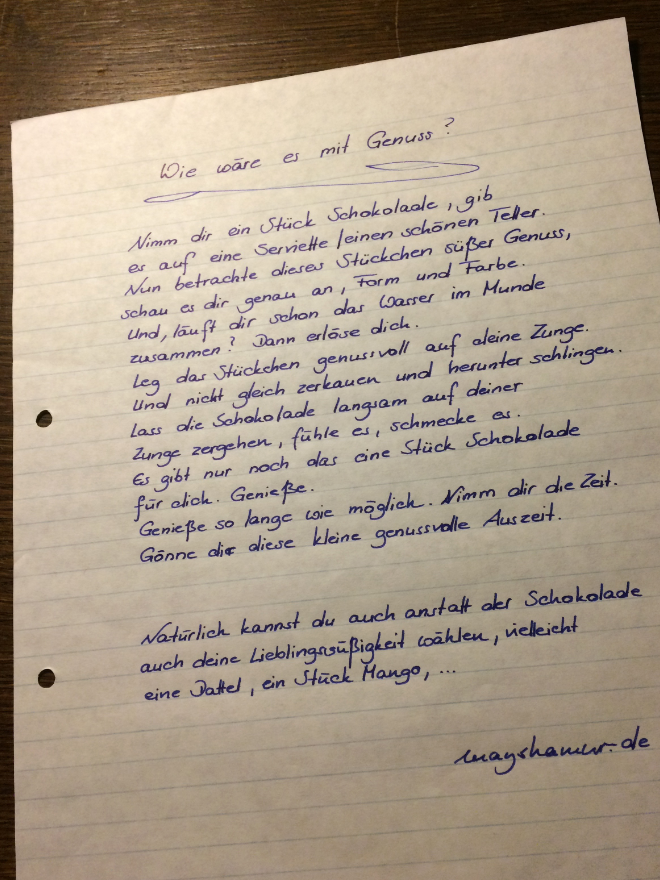 Wie wäre es mit Genuss?
Nimm dir ein Stück Schokolade, gib
es auf eine Serviette/einen schönen Teller.
Nun betrachte dieses Stückchen süßer Genuss,
schau es dir genau an, Form und Farbe.
Und, läuft dir schon das Wasser im Munde
zusammen? Dann erlöse dich.
Leg das Stückchen genussvoll auf deine Zunge.
Und nicht gleich zerkauen und herunter schlingen.
Lass die Schokolade langsam auf deiner
Zunge zergehen, fühle es, schmecke es.
Es gibt nur noch das eine Stück Schokolade
für dich. Genieße.
Genieße so lange wie möglich. Nimm dir die Zeit.
Gönne dir diese kleine genussvolle Auszeit.
Natürlich kannst du auch anstatt der Schokolade
auch deine Lieblingssüßigkeit wählen, vielleicht
eine Dattel, ein Stück Mango, ...